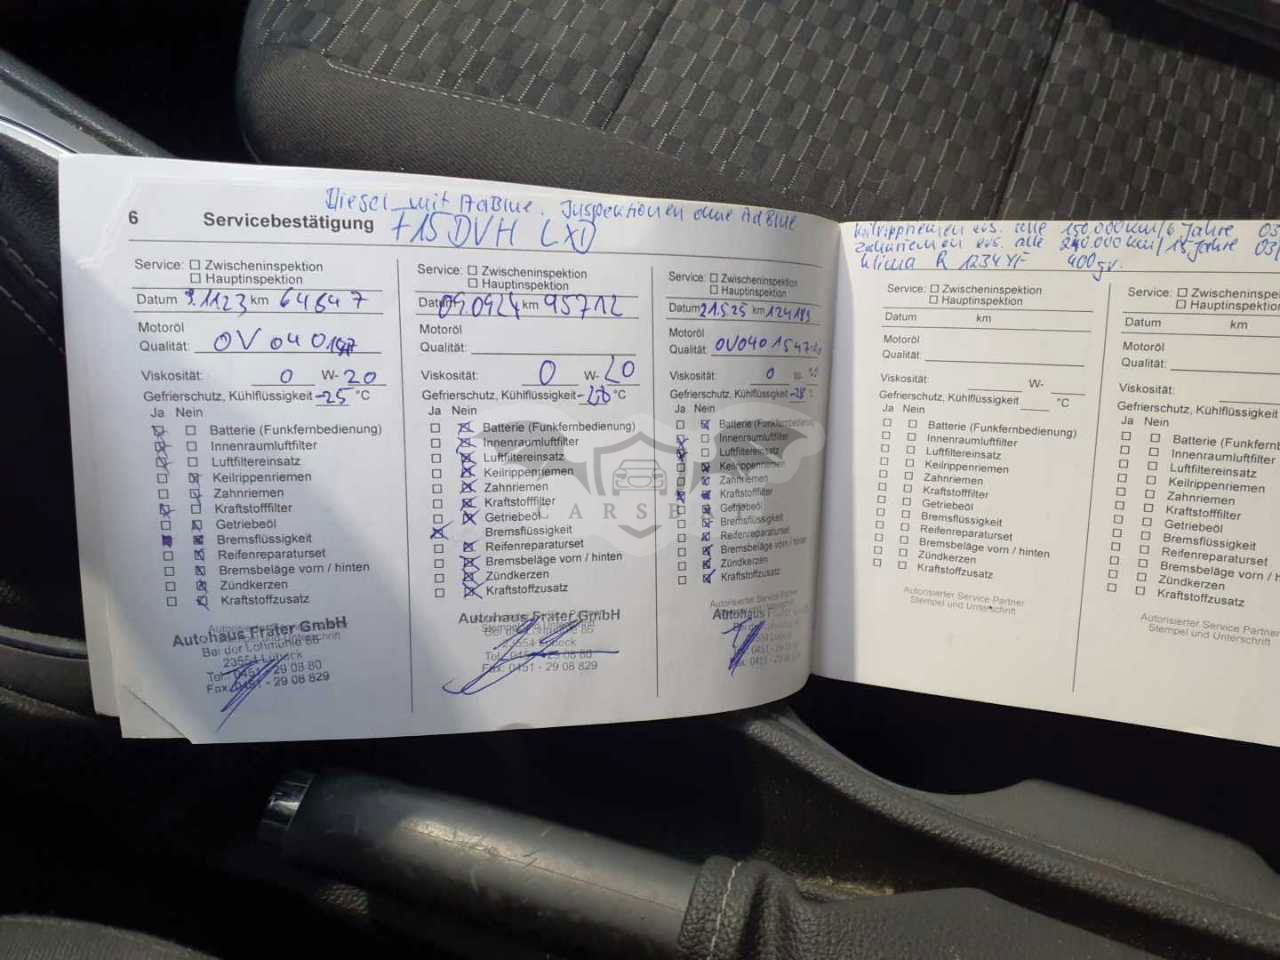 Diesel mit AdBlue. Inspektionen ohne AdBlue
6 Servicebestätigung F15DVH LXD
Service: Zwischeninspektion
Hauptinspektion
Datum 9.1123 km 64647
Motoröl
Qualität: OV0401547
Viskosität: 0 W-20
Gefrierschutz, Kühlflüssigkeit -25 °C
Ja Nein
Batterie (Funkfernbedienung)
Innenraumluftfilter
Luftfiltereinsatz
Keilrippenriemen
Zahnriemen
Kraftstofffilter
Getriebeöl
Bremsflüssigkeit
Reifenreparaturset
Bremsbeläge vorn / hinten
Zündkerzen
Kraftstoffzusatz
Autorisierter Service Partner
Stempel und Unterschrift
Autohaus Frater GmbH
Bei der Lohmühle 86
23554 Lübeck
Tel. 0451 - 29 08 80
Fax 0451 - 29 08 829
Service: Zwischeninspektion
Hauptinspektion
Datum 09.0924 km 95712
Motoröl
Qualität:
Viskosität: 0 W-20
Gefrierschutz, Kühlflüssigkeit °C
Ja Nein
Batterie (Funkfernbedienung)
Innenraumluftfilter
Luftfiltereinsatz
Keilrippenriemen
Zahnriemen
Kraftstofffilter
Getriebeöl
Bremsflüssigkeit
Reifenreparaturset
Bremsbeläge vorn / hinten
Zündkerzen
Kraftstoffzusatz
Autohaus Frater GmbH
Bei der Lohmühle 86
23554 Lübeck
Tel. 0451 - 29 08 80
Fax. 0451 - 29 08 829
Service: Zwischeninspektion
Hauptinspektion
Datum 21.5.25 km 124189
Motoröl
Qualität: OV0401547
Viskosität: 0 W-
Gefrierschutz, Kühlflüssigkeit -28 °C
Ja Nein
Batterie (Funkfernbedienung)
Innenraumluftfilter
Luftfiltereinsatz
Keilrippenriemen
Zahnriemen
Kraftstofffilter
Getriebeöl
Bremsflüssigkeit
Reifenreparaturset
Bremsbeläge vorn / hinten
Zündkerzen
Kraftstoffzusatz
Autorisierter Service Partner
Autohaus
Keilrippriemen ers. alle 150.000km/6 Jahre 03
Zahnriemen ers. alle 240.000km/15 Jahre 03/
Klima R 1234YF 400gr.
Service: Zwischeninspektion
Hauptinspektion
Datum km
Motoröl
Qualität:
Viskosität: W-
Gefrierschutz, Kühlflüssigkeit °C
Ja Nein
Batterie (Funkfernbedienung)
Innenraumluftfilter
Luftfiltereinsatz
Keilrippenriemen
Zahnriemen
Kraftstofffilter
Getriebeöl
Bremsflüssigkeit
Reifenreparaturset
Bremsbeläge vorn / hinten
Zündkerzen
Kraftstoffzusatz
Autorisierter Service Partner
Stempel und Unterschrift
Service: Zwischeninspe
Hauptinspektion
Datum km
Motoröl
Qualität:
Viskosität:
Gefrierschutz, Kühlflüssigk
Ja Nein
Batterie (Funkfern
Innenraumluftfilter
Luftfiltereinsatz
Keilrippenriemen
Zahnriemen
Kraftstofffilter
Getriebeöl
Bremsflüssigkeit
Reifenreparaturset
Bremsbeläge vorn / h
Zündkerzen
Kraftstoffzusatz
Autorisierter Service Partner
Stempel und Unterschrift
CARSBAT